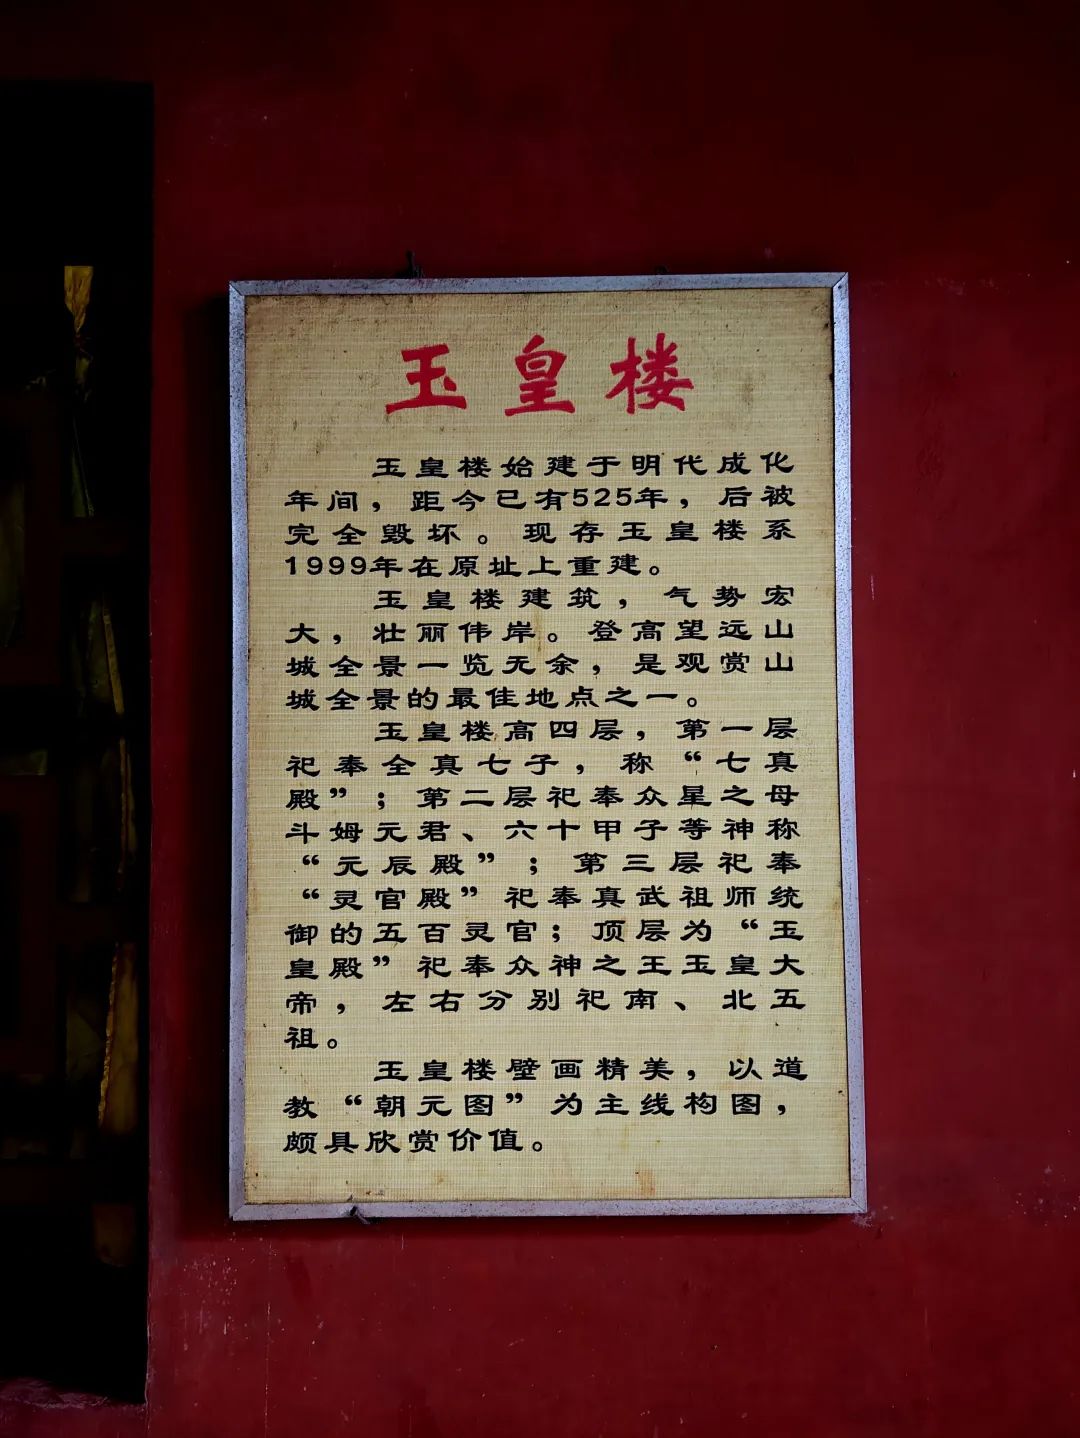 玉皇楼
玉皇楼始建于明代成化
年间，距今已有525年，后被
完全毁坏。现存玉皇楼系
1999年在原址上重建。
玉皇楼建筑，气势宏
大，壮丽伟岸。登高望远山
城全景一览无余，是观赏山
城全景的最佳地点之一。
玉皇楼高四层，第一层
祀奉全真七子，称“七真
殿”；第二层祀奉众星之母
斗姆元君、六十甲子等神称
“元辰殿”；第三层祀奉
“灵官殿”祀奉真武祖师统
御的五百灵官；顶层为“玉
皇殿”祀奉众神之王玉皇大
帝，左右分别祀南、北五
祖。
玉皇楼壁画精美，以道
教“朝元图”为主线构图，
颇具欣赏价值。